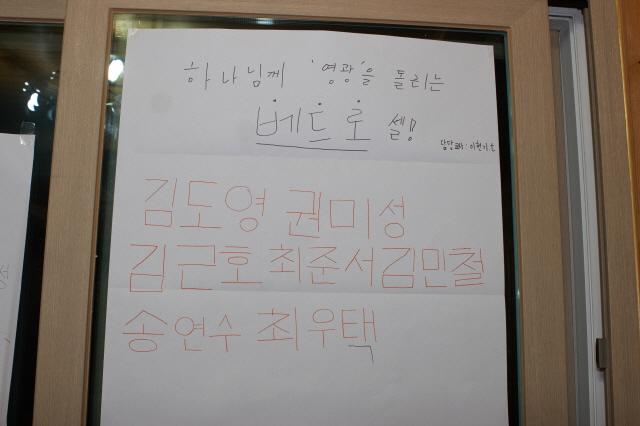 하나님께 '영광'을 돌리는
베드로 셀!
담당교사: 이현기
김도영 권미성
김근호 최준서 김민철
송연수 최우택